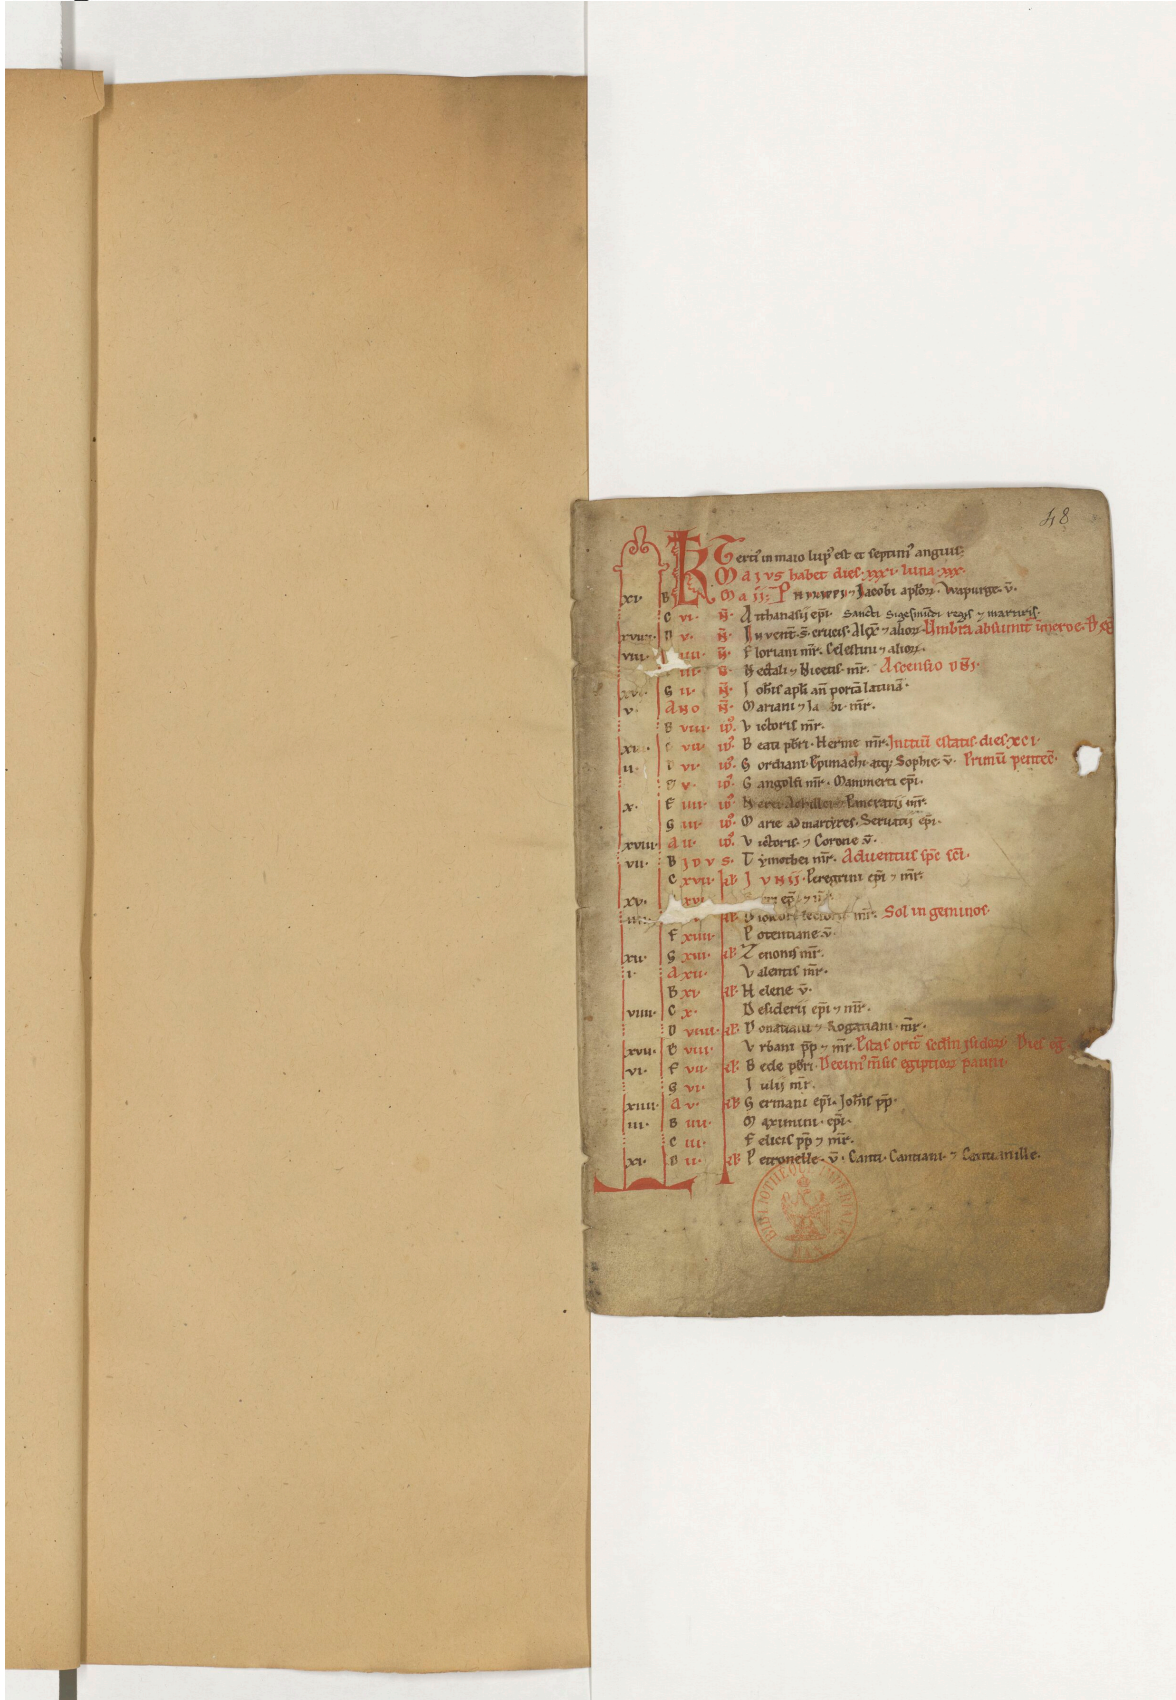 48
Terti᷒ in maio lup᷒ est et septim᷒ anguis
KL Maivs habet dies xxxi luna xxx
xi B Maii P Jacobi aplōꝝ Walpurge v̄
C vi N̄ Athanasij ep̄i Sancti Sigesmūdi regis ⁊ martiris
xviiii D v N̄ Invent̄ s̄ crucis Alex̄ ⁊ alioꝝ Umbra absumit
viii iiii N̄ Floriani mr̄ Celestini ⁊ alioꝝ
iii N̄ Ascensio
G ii N̄ Johīs apl̄i an̄ portā latinā
v A NO N̄ Mariani ⁊ Ja bi mr̄
B viii id᷒ Victoris mr̄
vii id᷒ Beati pb̄ri Herme mr̄ Initiū estatis dies xci
ii vi id᷒ Gordiani Epimachi atq Sophie v̄ Primū pentec̄
v id᷒ Gangolfi mr̄ Mammerti ep̄i
x F iiii id᷒ Nerei Achillei Pancratij mr̄
G iii id᷒ Marie ad martyres Seruatij ep̄i
xviii A ii id᷒ Victoris ⁊ Corone v̄
vii B idvs Tymothei mr̄ Adventus sp̄c sc̄i
C xvii kl Ivnii Peregrini ep̄i ⁊ mr̄
xv xvi ep̄i ⁊
kl mr̄ Sol in geminos
F xiiii Potentiane v̄
xii G xiii kl Zenonis mr̄
i A xii Valentis mr̄
B xi kl Helene v̄
viiii C x Desiderij ep̄i ⁊ mr̄
D viiii kl Donatiani ⁊ Rogatiani mr̄
xvii E viii Vrbani pp̄ ⁊ mr̄ Estas orit̄ sedm̄ ysidorꝝ Dies eḡ
vi F vii kl Bede pb̄ri Decim᷒ m̄sis egiptioꝝ pauni
G vi Iulij mr̄
xiiii A v kl Germani ep̄i Johīs pp̄
iii B iiii Maximini ep̄i
C iii Felicis pp̄ ⁊ mr̄
xi D ii kl Petronelle v̄ Canti Cantiani ⁊ Cantianille
BIBLIOTHEQUE IMPERIALE
MAN